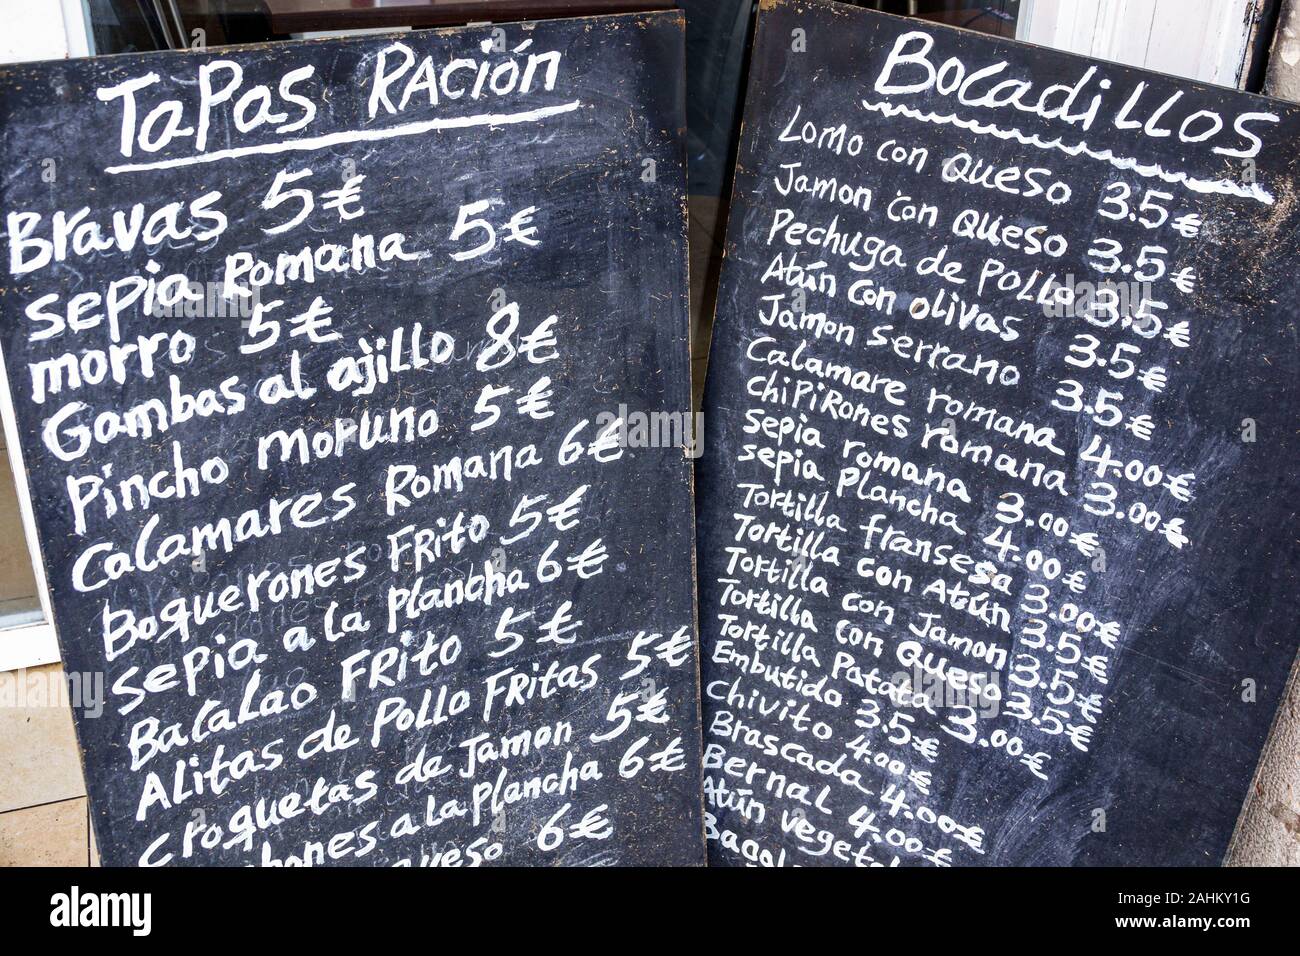 TaPas RACIÓN
Bravas 5€
sepia Romana 5€
morro 5€
Gambas al ajillo 8€
Pincho moruno 5€
Calamares Romana 6€
Boquerones FRito 5€
sepia a la plancha 6€
Bacalao FRito 5€
Alitas de Pollo FRitas 5€
croquetas de Jamon 5€
a la plancha 6€
6€
Bocadillos
Lomo con Queso 3.5€
Jamon con Queso 3.5€
Pechuga de Pollo 3.5€
Atún con olivas 3.5€
Jamon serrano 3.5€
Calamare romana 4.00€
chiPiRones romana 3.00€
sepia romana 3.00€
sepia plancha 4.00€
Tortilla fransesa 3.00€
Tortilla con Atún 3.5€
Tortilla con Jamon 3.5€
Tortilla con queso 3.5€
Tortilla Patata 3.00€
Embutido 3.5€
Chivito 4.00€
Brascada 4.00€
Bernal 4.00€
Atún
alamy
Image ID: 2AHKY1G
www.alamy.com